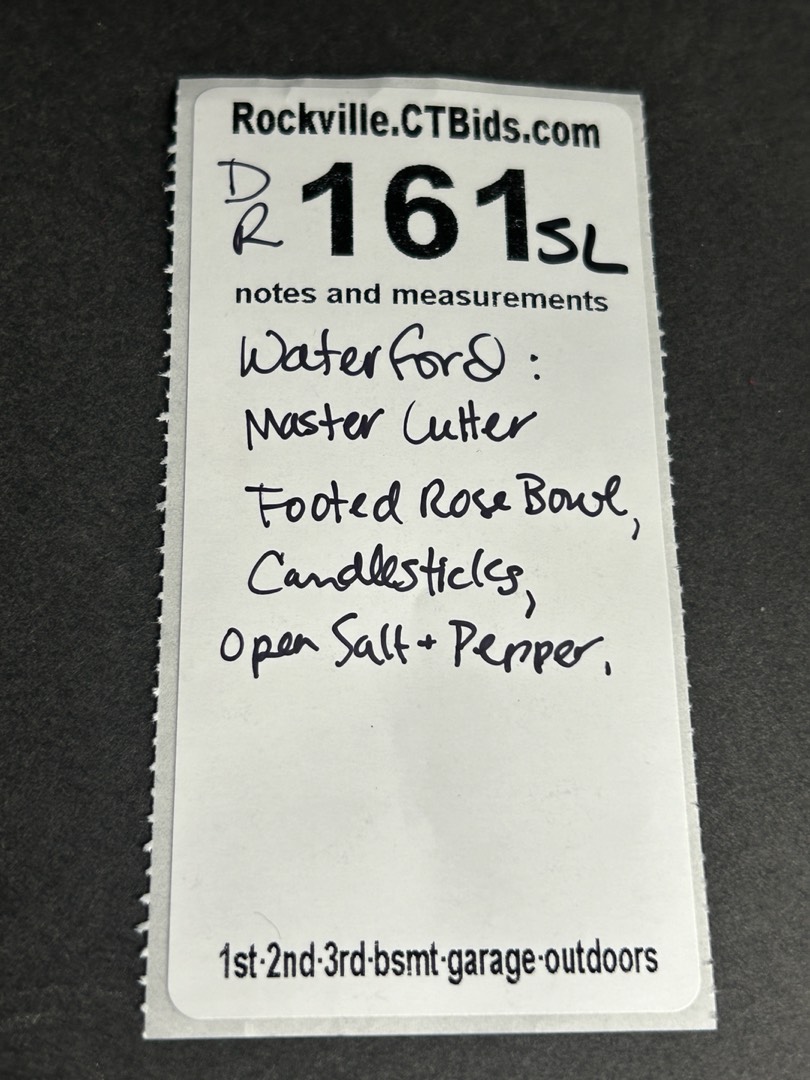 Rockville.CTBids.com
DR 161 SL
notes and measurements
Waterford:
Master Cutter
Footed Rose Bowl,
Candlesticks,
Open Salt + Pepper.
1st·2nd·3rd·bsmt·garage·outdoors